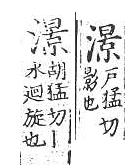 澋
戶猛切
影也
澋
胡猛切丨
水迴旋也